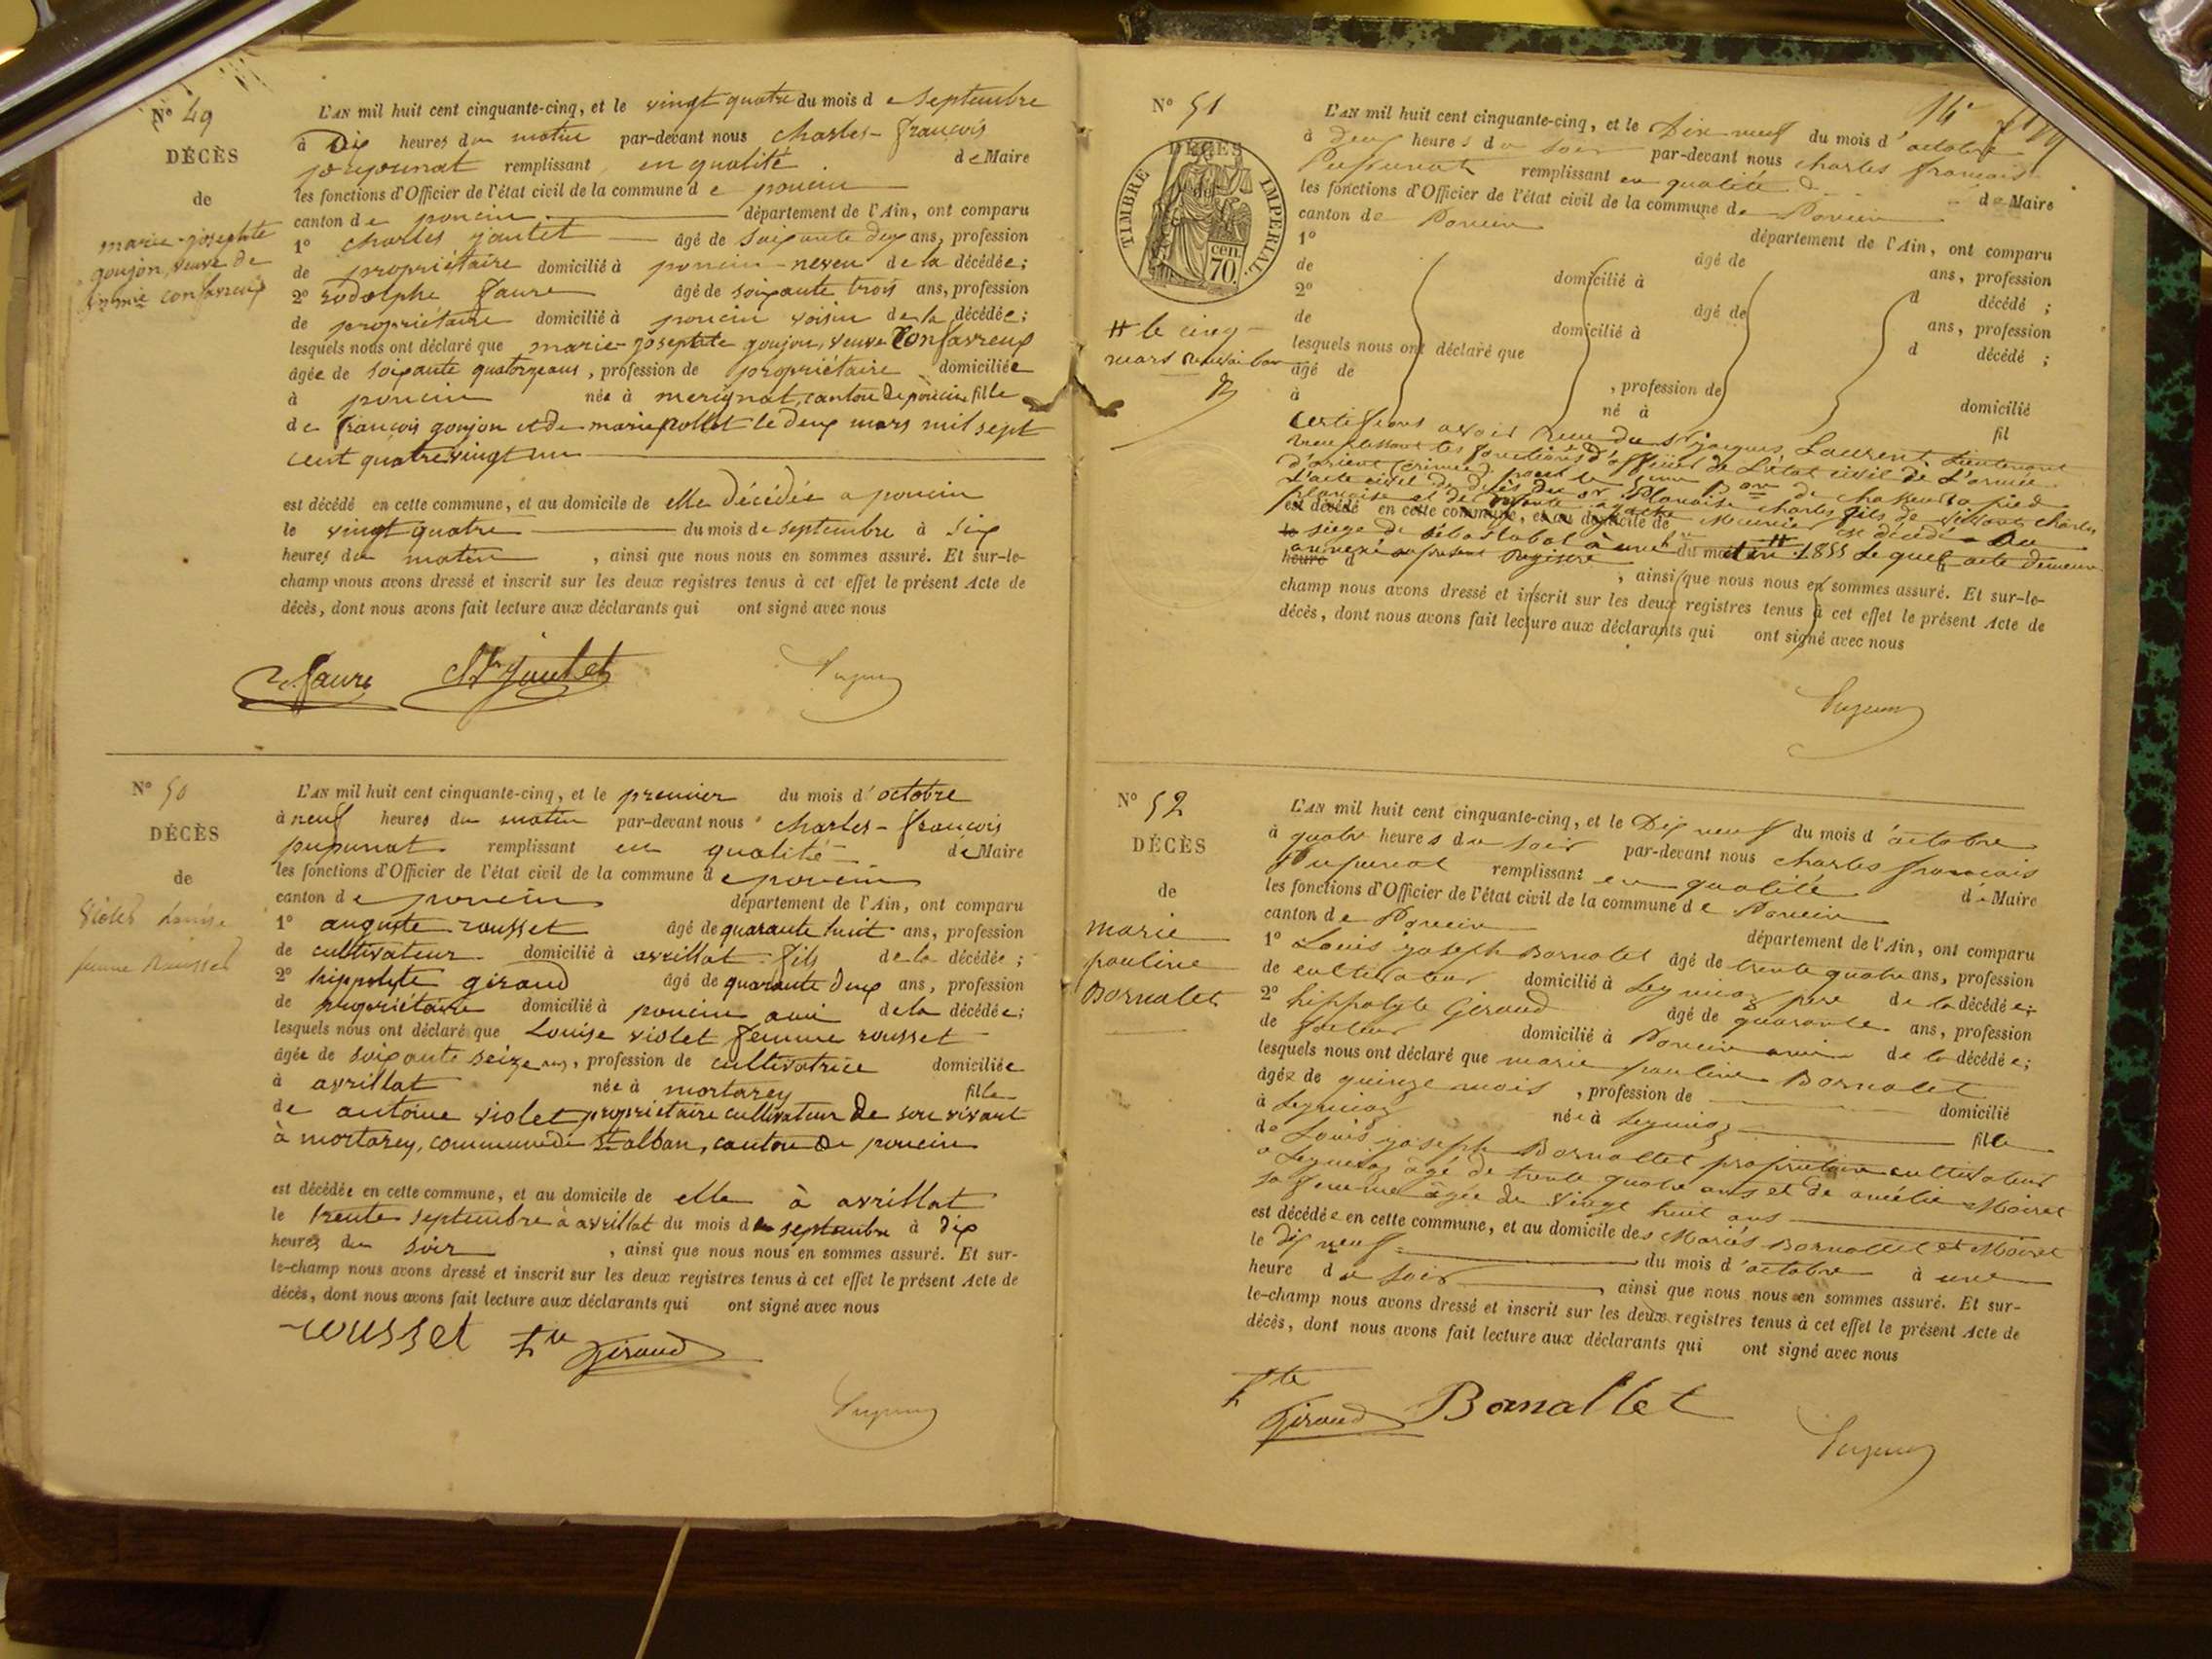 N° 49
DÉCÈS
de
marie-josephte
goujon, veuve de
L'AN mil huit cent cinquante-cinq, et le vingt quatre du mois de septembre
à Dix heures du matin par-devant nous charles-françois
remplissant en qualité de Maire
les fonctions d'Officier de l'état civil de la commune de poncin
canton de poncin département de l'Ain, ont comparu
1° charles jantet âgé de soixante deux ans, profession
de propriétaire domicilié à poncin neveu de la décédée;
2° rodolphe faure âgé de soixante trois ans, profession
de propriétaire domicilié à poncin voisin de la décédée;
lesquels nous ont déclaré que marie-josephte goujon, veuve Confavreux
âgée de soixante quatorze ans, profession de propriétaire domiciliée
à poncin née à merignat, canton de poncin fille
de françois goujon et de marie pollet le deux mars mil sept
cent quatre vingt un
est décédé en cette commune, et au domicile de elle décédée a poncin
le vingt quatre du mois de septembre à six
heures du matin, ainsi que nous nous en sommes assuré. Et sur-le-
champ nous avons dressé et inscrit sur les deux registres tenus à cet effet le présent Acte de
décès, dont nous avons fait lecture aux déclarants qui ont signé avec nous
faure Jantet
N° 50
DÉCÈS
de
Violet Louise
femme Rousset
L'AN mil huit cent cinquante-cinq, et le premier du mois d'octobre
à neuf heures du matin par-devant nous charles-françois
pupunat remplissant en qualité de Maire
les fonctions d'Officier de l'état civil de la commune de poncin
canton de poncin département de l'Ain, ont comparu
1° auguste rousset âgé de quarante huit ans, profession
de cultivateur domicilié à avrillat fils de la décédée;
2° hippolyte giraud âgé de quarante deux ans, profession
de propriétaire domicilié à poncin ami de la décédée;
lesquels nous ont déclaré que Louise violet femme rousset
âgée de soixante seize ans, profession de cultivatrice domiciliée
à avrillat née à mortarey fille
de antoine violet propriétaire cultivateur de son vivant
à mortarey, commune de St alban, canton de poncin
est décédée en cette commune, et au domicile de elle à avrillat
le trente septembre à avrillat du mois de septembre à dix
heures du soir, ainsi que nous nous en sommes assuré. Et sur-
le-champ nous avons dressé et inscrit sur les deux registres tenus à cet effet le présent Acte de
décès, dont nous avons fait lecture aux déclarants qui ont signé avec nous
rousset Giraud
N° 51
DÉCÈS
de
TIMBRE IMPERIAL
70 cen.
le cinq
mars
L'AN mil huit cent cinquante-cinq, et le Dix neuf du mois d'octobre
à deux heures du soir par-devant nous charles françois
Pupunat remplissant en qualité de Maire
les fonctions d'Officier de l'état civil de la commune de Poncin
canton de Poncin département de l'Ain, ont comparu
1° âgé de ans, profession
de domicilié à d décédé;
2° âgé de ans, profession
de domicilié à d décédé;
lesquels nous ont déclaré que
âgé de, profession de domicilié
à né à fil
certifions avoir reçu du Sr jacques Laurent Lieutenant
remplissant les fonctions d'officier de L'état civil de L'armée
d'orient (crimée) de chasseurs a pied
L'acte civil de décès du Sr Planaise charles fils de
Planaise et de Meunier est décédé au
est décédé en cette commune, et au domicile de
siege de sebastobol à une h du matin 1855 Lequel acte demeure
annexé au présent registre
heure d, ainsi que nous nous en sommes assuré. Et sur-le-
champ nous avons dressé et inscrit sur les deux registres tenus à cet effet le présent Acte de
décès, dont nous avons fait lecture aux déclarants qui ont signé avec nous
N° 52
DÉCÈS
de
marie
pauline
Bornalet
L'AN mil huit cent cinquante-cinq, et le Dix neuf du mois d'octobre
à quatre heures du soir par-devant nous charles françois
Pupunat remplissant en qualité de Maire
les fonctions d'Officier de l'état civil de la commune de Poncin
canton de Poncin département de l'Ain, ont comparu
1° Louis joseph Bornalet âgé de trente quatre ans, profession
de cultivateur domicilié à Leymiaz père de la décédée;
2° hippolyte Giraud âgé de quarante ans, profession
de facteur domicilié à Poncin ami de la décédée;
lesquels nous ont déclaré que marie pauline Bornalet
âgée de quinze mois, profession de domicilié
à Leymiaz née à Leymiaz fille
de Louis joseph Bornallet propriétaire cultivateur
a Leymiaz âgé de trente quatre ans et de amélie Moiret
sa femme âgée de vingt huit ans
est décédée en cette commune, et au domicile des Mariés Bornallet et Moiret
le dix neuf du mois d'octobre à une
heure du soir, ainsi que nous nous en sommes assuré. Et sur-
le-champ nous avons dressé et inscrit sur les deux registres tenus à cet effet le présent Acte de
décès, dont nous avons fait lecture aux déclarants qui ont signé avec nous
Giraud Bornallet